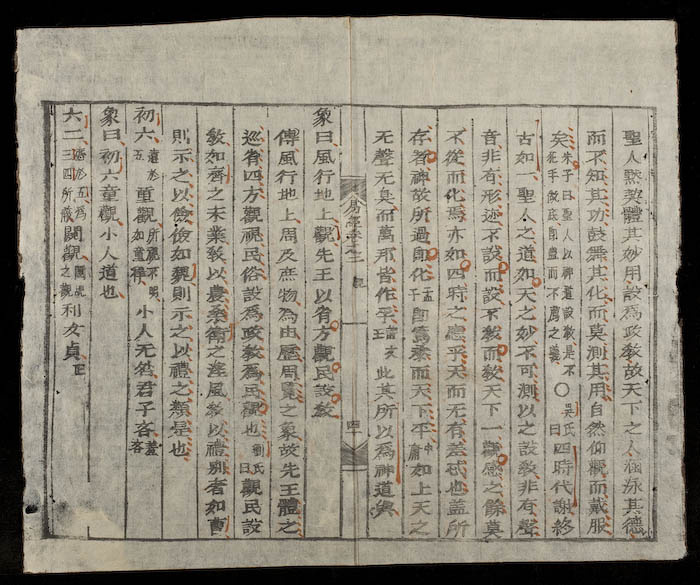 聖人黙契體其妙用設爲政敎故天下之人涵泳其德
而不知其功鼓舞其化而莫測其用自然仰觀而戴服
矣朱子曰聖人以神道設敎是不犯手做底卽盥而不薦之義○吳氏曰四時代謝終
古如一聖人之道如天之妙不可測以之設敎非有聲
音非有形迹不說而設不敎而敎天下一觀感之餘莫
不從而化焉亦如四時之患乎天而无有差忒也盖所
存者神故所過卽化孟子卽篤恭而天下平中庸如上天之
无聲无臭而萬邦皆作孚詩文王此其所以爲神道與
易經卷之三 觀 四十
象曰風行地上觀先王以省方觀民設敎
傳風行地上周及庶物為由歷周覽之象故先王體之
巡省四方觀視民俗設爲政敎爲民觀也劉氏曰觀民設
敎如齊之末業敎以農桑衛之淫風敎以禮別奢如曹
則示之以儉儉如魏則示之以禮之類是也
初六遠於五童觀所觀不明如童稺小人无咎君子吝盖吝
象曰初六童觀小人道也
六二應於五爲三四所蔽闚觀闚覘之觀利女貞正